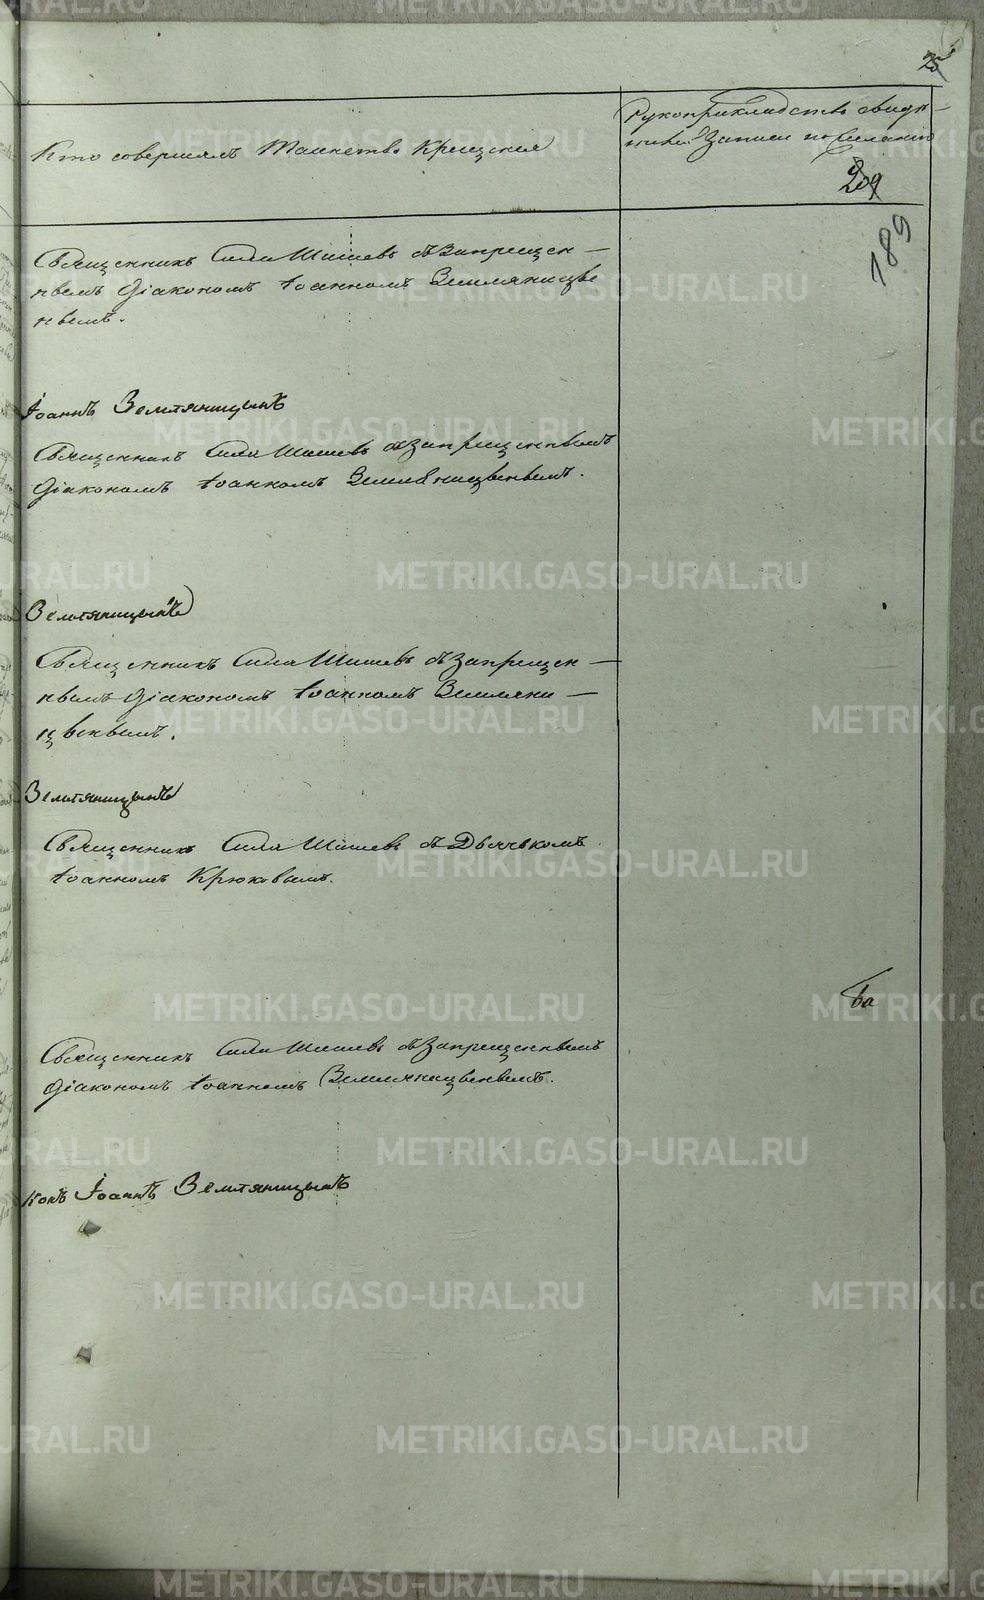 25
Кто совершалъ Таинство Крещения
Рукоприкладство свидѣ-
Записи по желанію
209
189
Священникъ Сила Шишевъ съ Запрещен-
нымъ Діакономъ Іоанномъ Землянице
нымъ.
Іоаннъ Земляницынъ
Священникъ Сила Шишевъ съ Запрещеннымъ
Діакономъ Іоанномъ
Земляницынъ
Священникъ Сила Шишевъ съ Запрещен-
нымъ Діакономъ Іоанномъ Земляни-
Земляницынъ
Священникъ Сила Шишевъ съ Дьячькомъ
Іоанномъ Крюковымъ.
Священникъ Сила Шишевъ съ Запрещеннымъ
Діакономъ Іоанномъ
конъ Іоаннъ Земляницынъ
METRIKI.GASO-URAL.RU